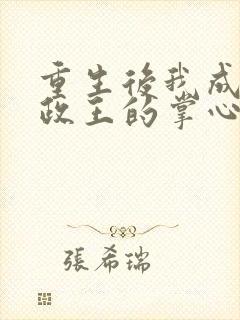 重生後我成
政王的掌心
張希瑞